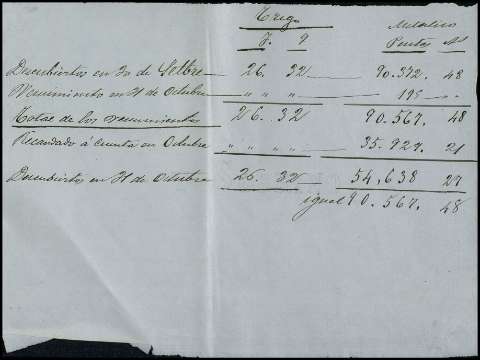 Trigo Metalico
F. q Pesetas
Descubiertos en 30 de Setbre 26. 32 90.372. 48
Vencimiento en 31 de Octubre " " " " 195 " "
Total de los vencimientos 26. 32 90.567. 48
Recaudado á cuenta en Octubre " " " " 35.929. 21
Descubiertos en 31 de Octubre 26. 32 54,638 27
igual 90.567. 48